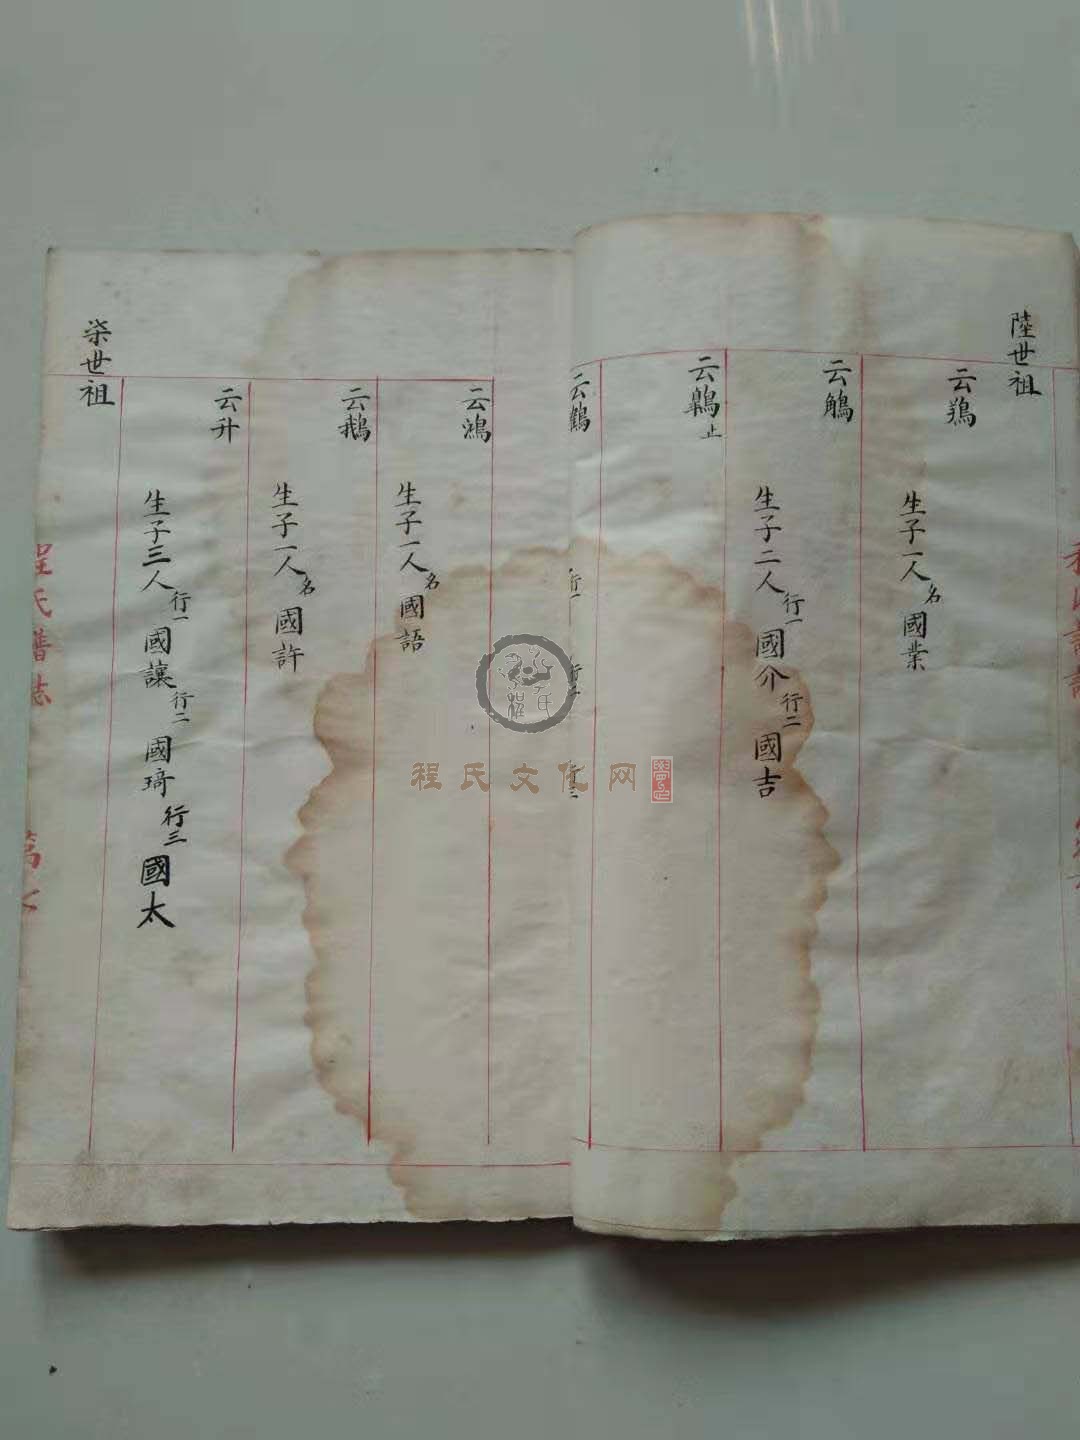 陸世祖
云鵝
生子一人名國業
云觹
生子二人行一國介行二國吉
云鶤止
云鶴
行一
行二
行三
云鴻
生子一人名國語
云鵝
生子一人名國許
云升
生子三人行一國讓行二國琦行三國太
柒世祖
程氏譜誌
程氏文化网